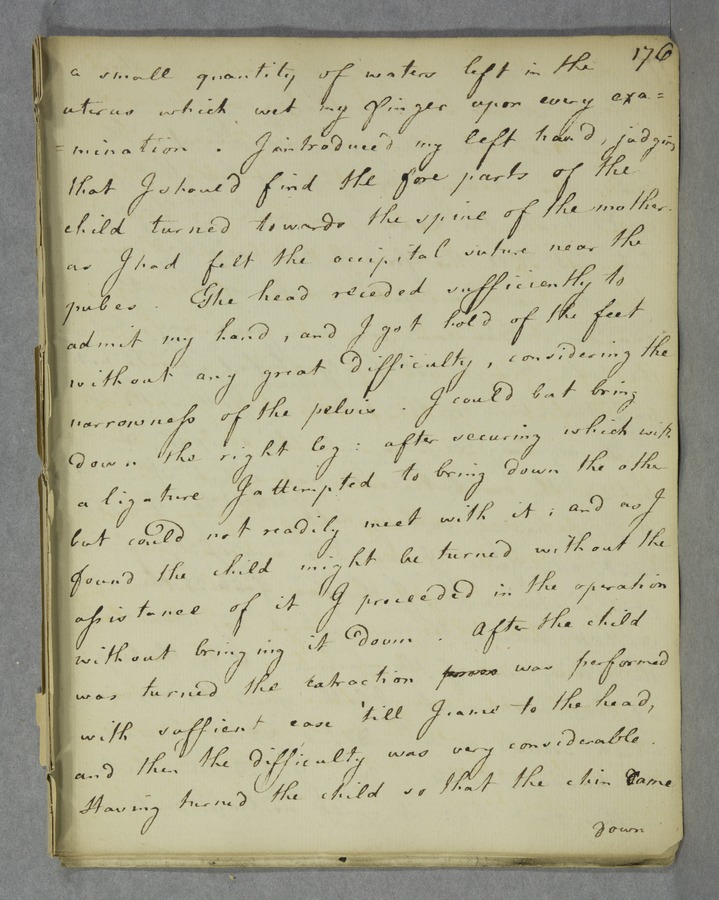 176
a small quantity of waters left in the
uterus which wet my finger upon every exa=
=mination. I introduced my left hand, judging
that I should find the fore parts of the
child turned towards the spine of the mother.
as I had felt the occipital suture near the
pubes. The head receded sufficiently to
admit my hand, and I got hold of the feet
without any great difficulty, considering the
narrowness of the pelvis. I could but bring
down the right leg: after securing which with
a ligature I attempted to bring down the other
but could not readily meet with it; and as I
found the child might be turned without the
assistance of it I proceeded in the operation
without bringing it down. After the child
was turned the extraction was performed
with suffient ease 'till I came to the head,
and then the difficulty was very considerable.
Having turned the child so that the chin came
down